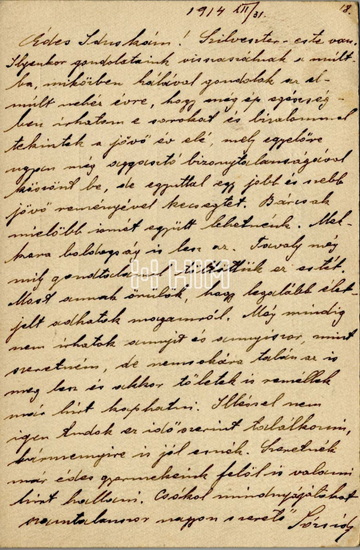 1914 XII/31. 18.
Édes Iduskám! Szilveszter-este van.
Ilyenkor gondolataink visszaszállnak a múlt-
ba, miközben hálával gondolok az el-
múlt nehéz évre, hogy még ép egészség-
ben írhatom e sorokat és bizalommal
tekintek a jövő év elé, mely egyelőre
ugyan még aggasztó bizonytalanságával
köszönt be, de egyúttal egy jobb és szebb
jövő reményével kecsegtet. Bárcsak
mielőbb ismét együtt lehetnénk. Mek-
kora boldogság is lesz az. Tavaly még
mily gondtalanul töltöttük ez estét.
Most annak örülök, hogy legalább élet
jelt adhatok magamról. Még mindig
nem írhatok annyit és annyiszor, mint
szeretném, de nemsokára talán az is
meg lesz és akkor tőletek is remélek
már hírt kaphatni. Illéssel nem
igen tudok ez időszerint találkozni,
bármennyire is jól esnék. Szeretnék
már édes gyermekeink felől is valami
hírt hallani. Csókol mindnyájatokat
számtalanszor nagyon szerető